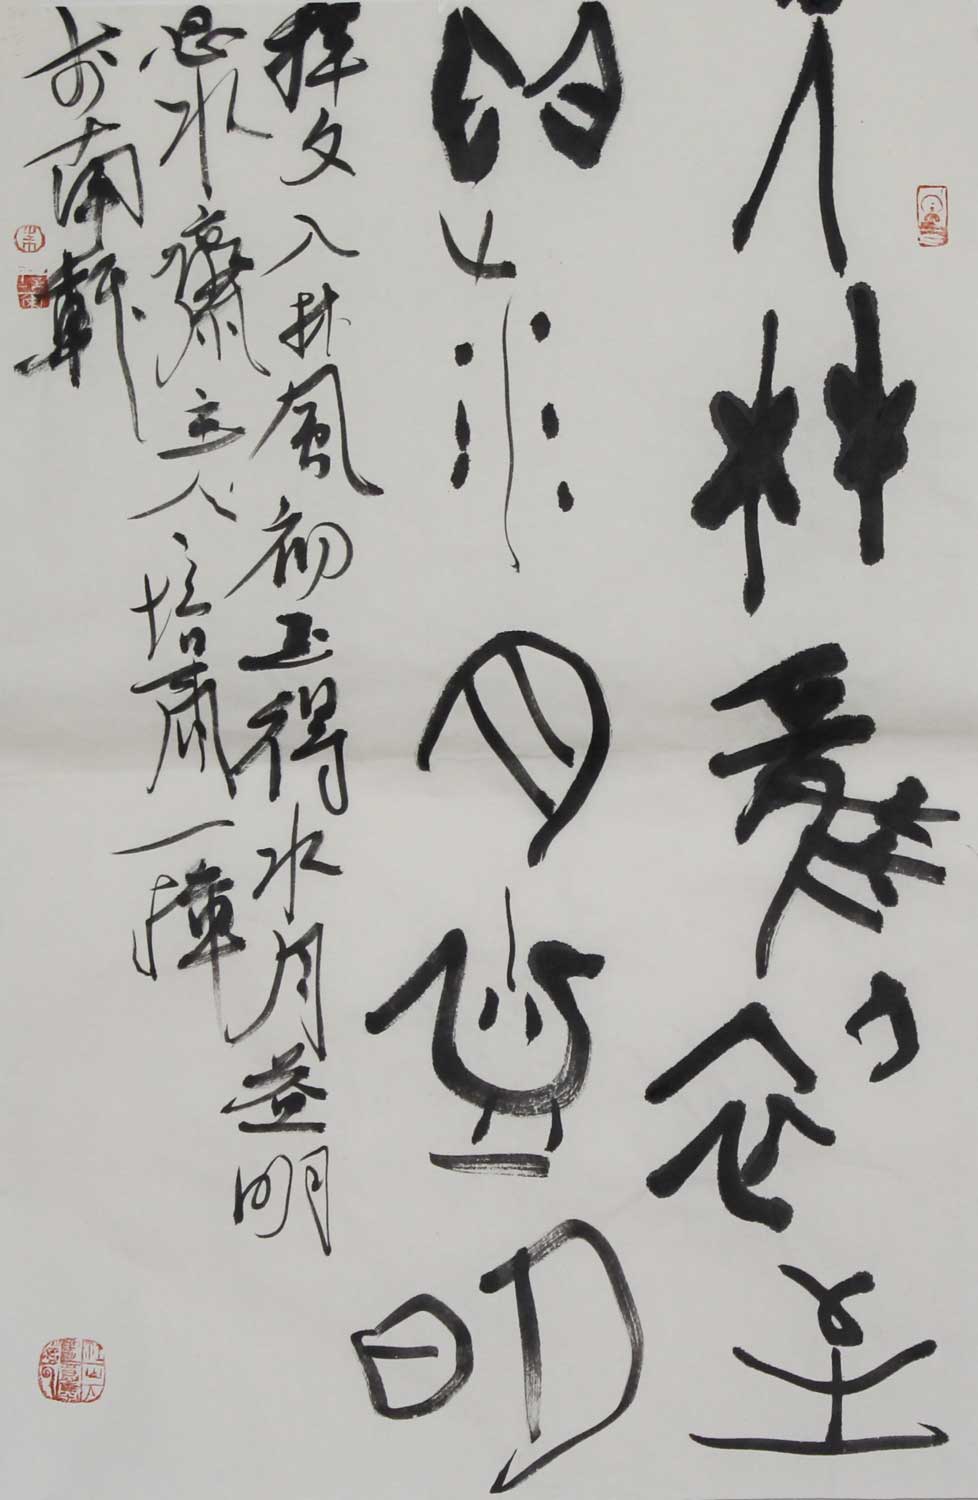 入林風初至
得水月益明
釋文入林風初至得水月益明
水齋主人培一揮
於南軒